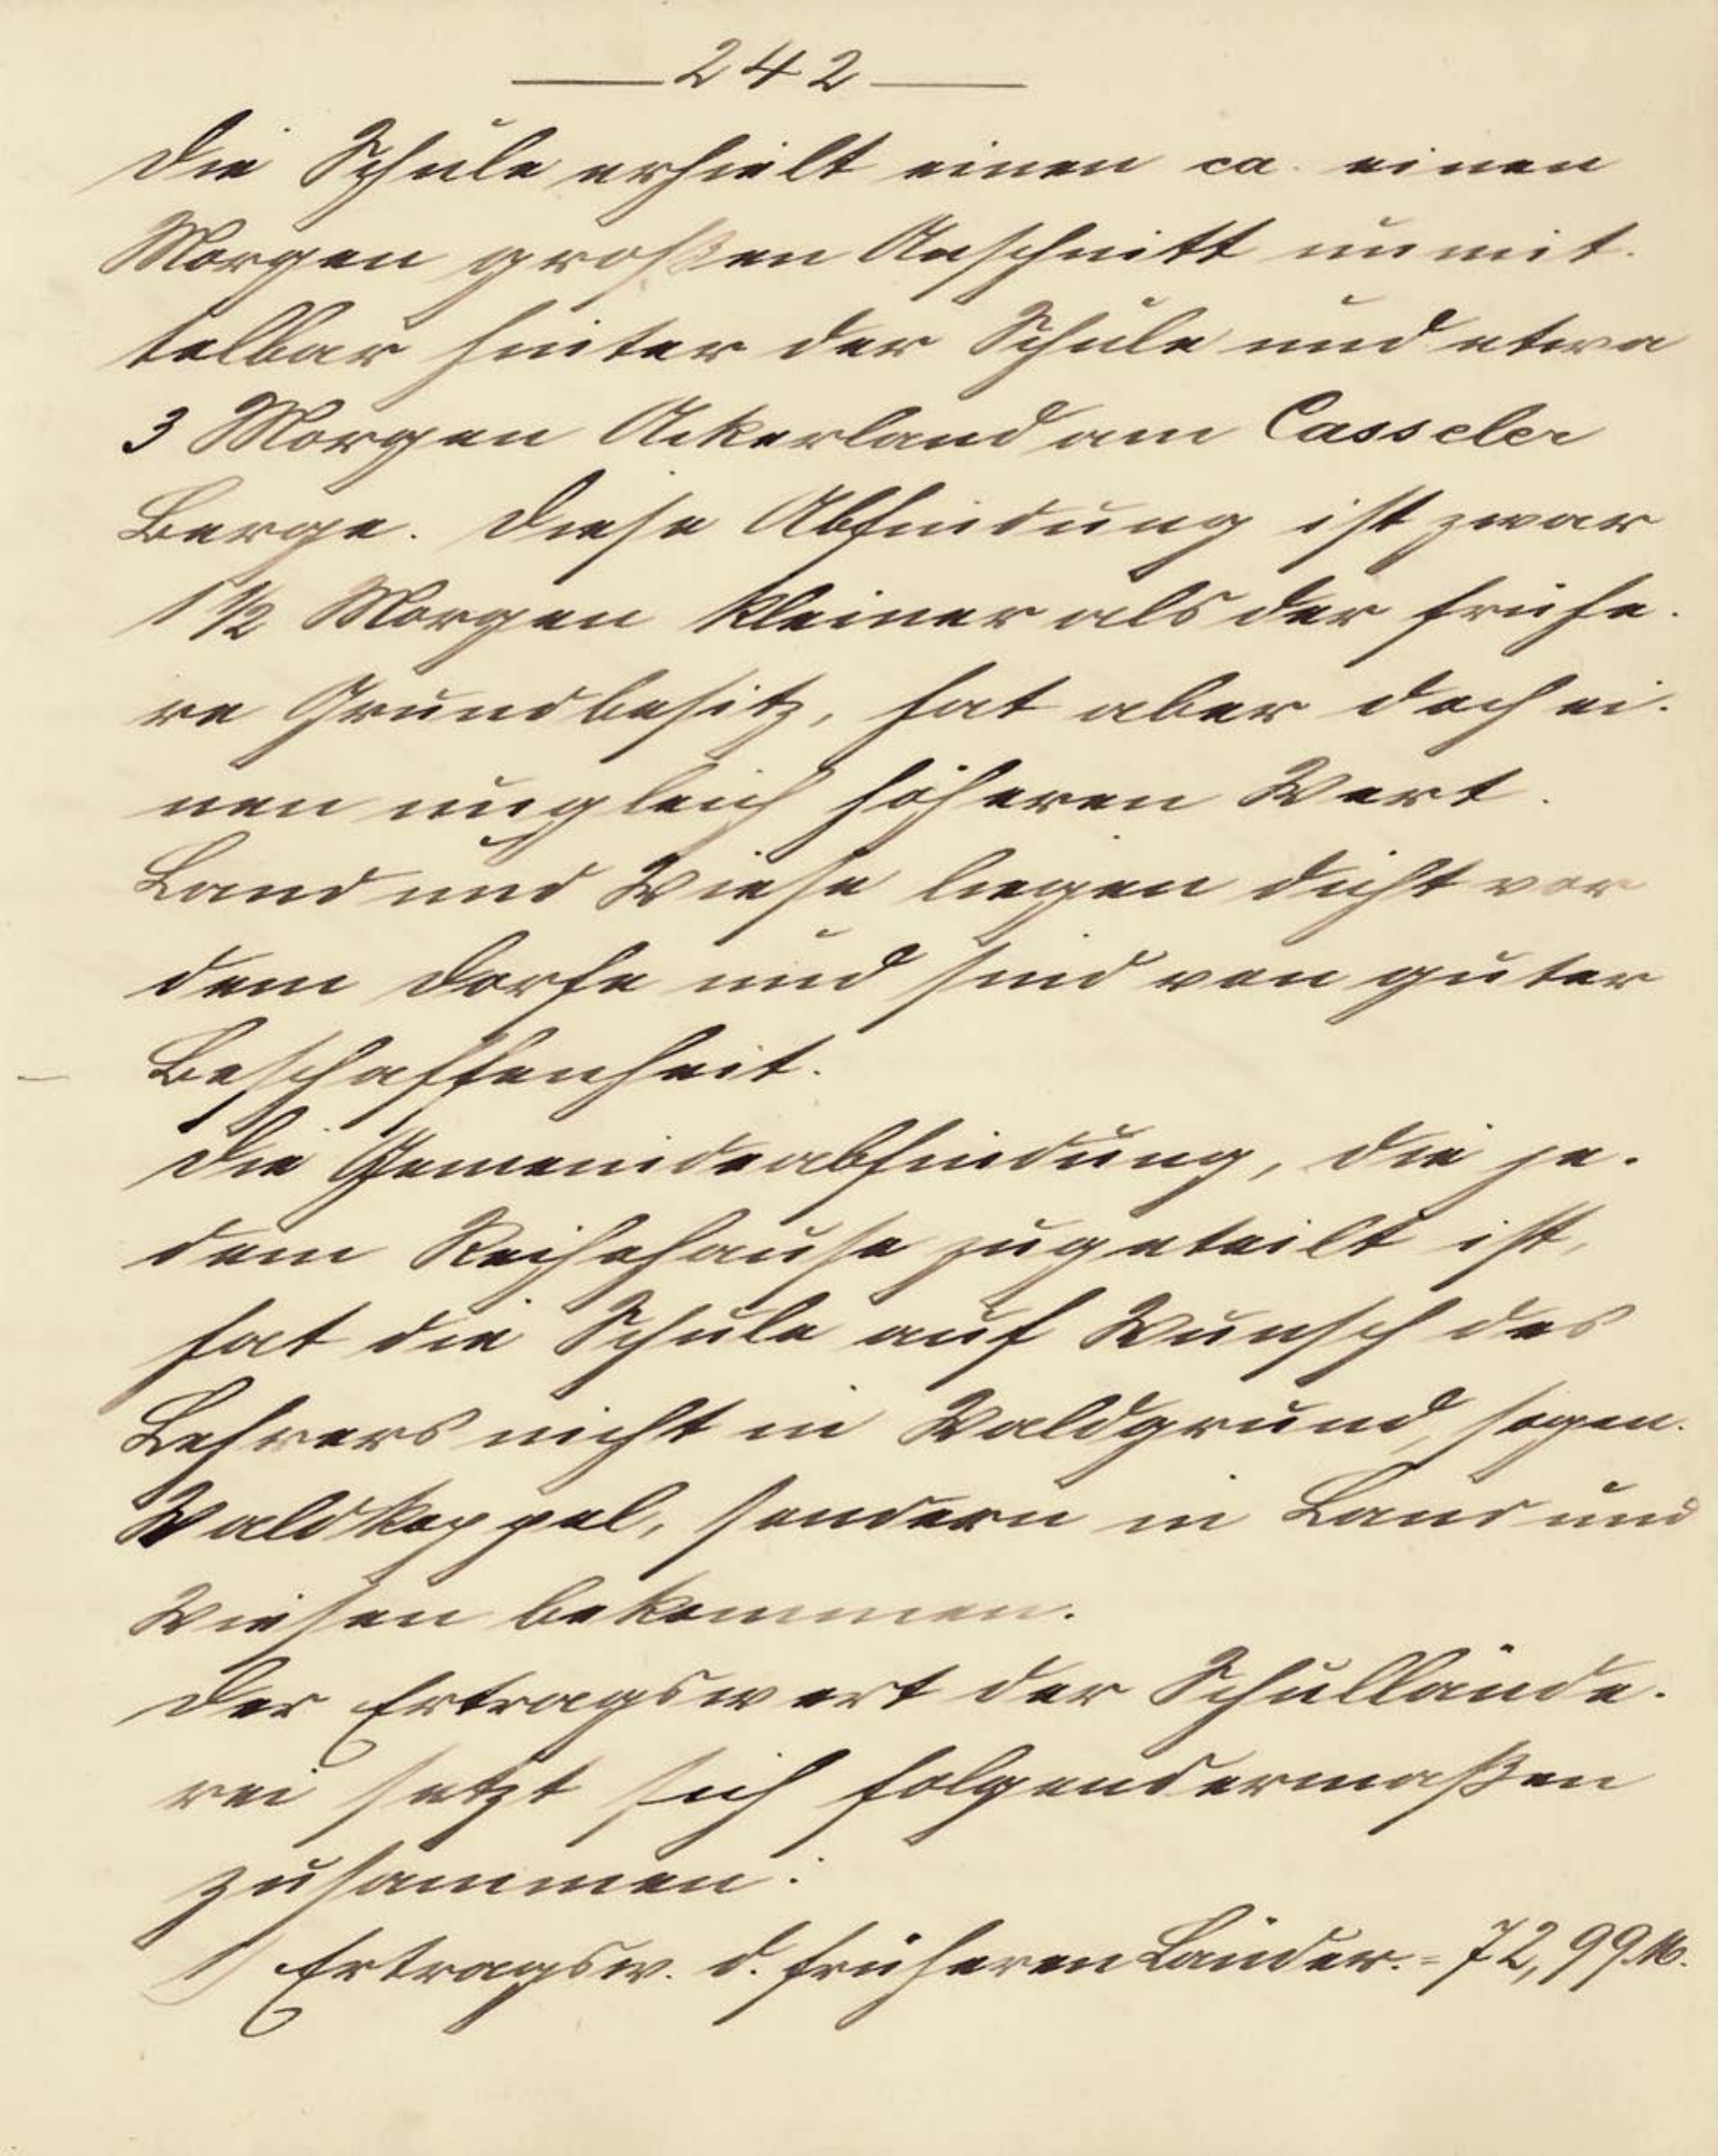 — 242 —
Die Schule erhielt einen ca. einen
Morgen großen Anschnitt unmit-
telbar hinter der Schule und etwa
3 Morgen Ackerland am Casseler
Berge. Diese Abfindung ist zwar
1 1/2 Morgen kleiner als der frühe-
re Grundbesitz, hat aber doch ei-
nen ungleich höheren Wert.
Land und Wiese liegen dicht vor
dem Dorfe und sind von guter
Beschaffenheit.
Die Gemeindeabfindung, die je-
dem Reihehause zugeteilt ist,
hat die Schule auf Wunsch des
Lehrers nicht in Waldgrund, sogen.
Waldkoppel, sondern in Land und
Wiesen bekommen.
Der Ertragswert der Schullände-
rei setzt sich folgendermaßen
zusammen:
1) Ertragsw. d. früheren Länder. = 72,99 M.